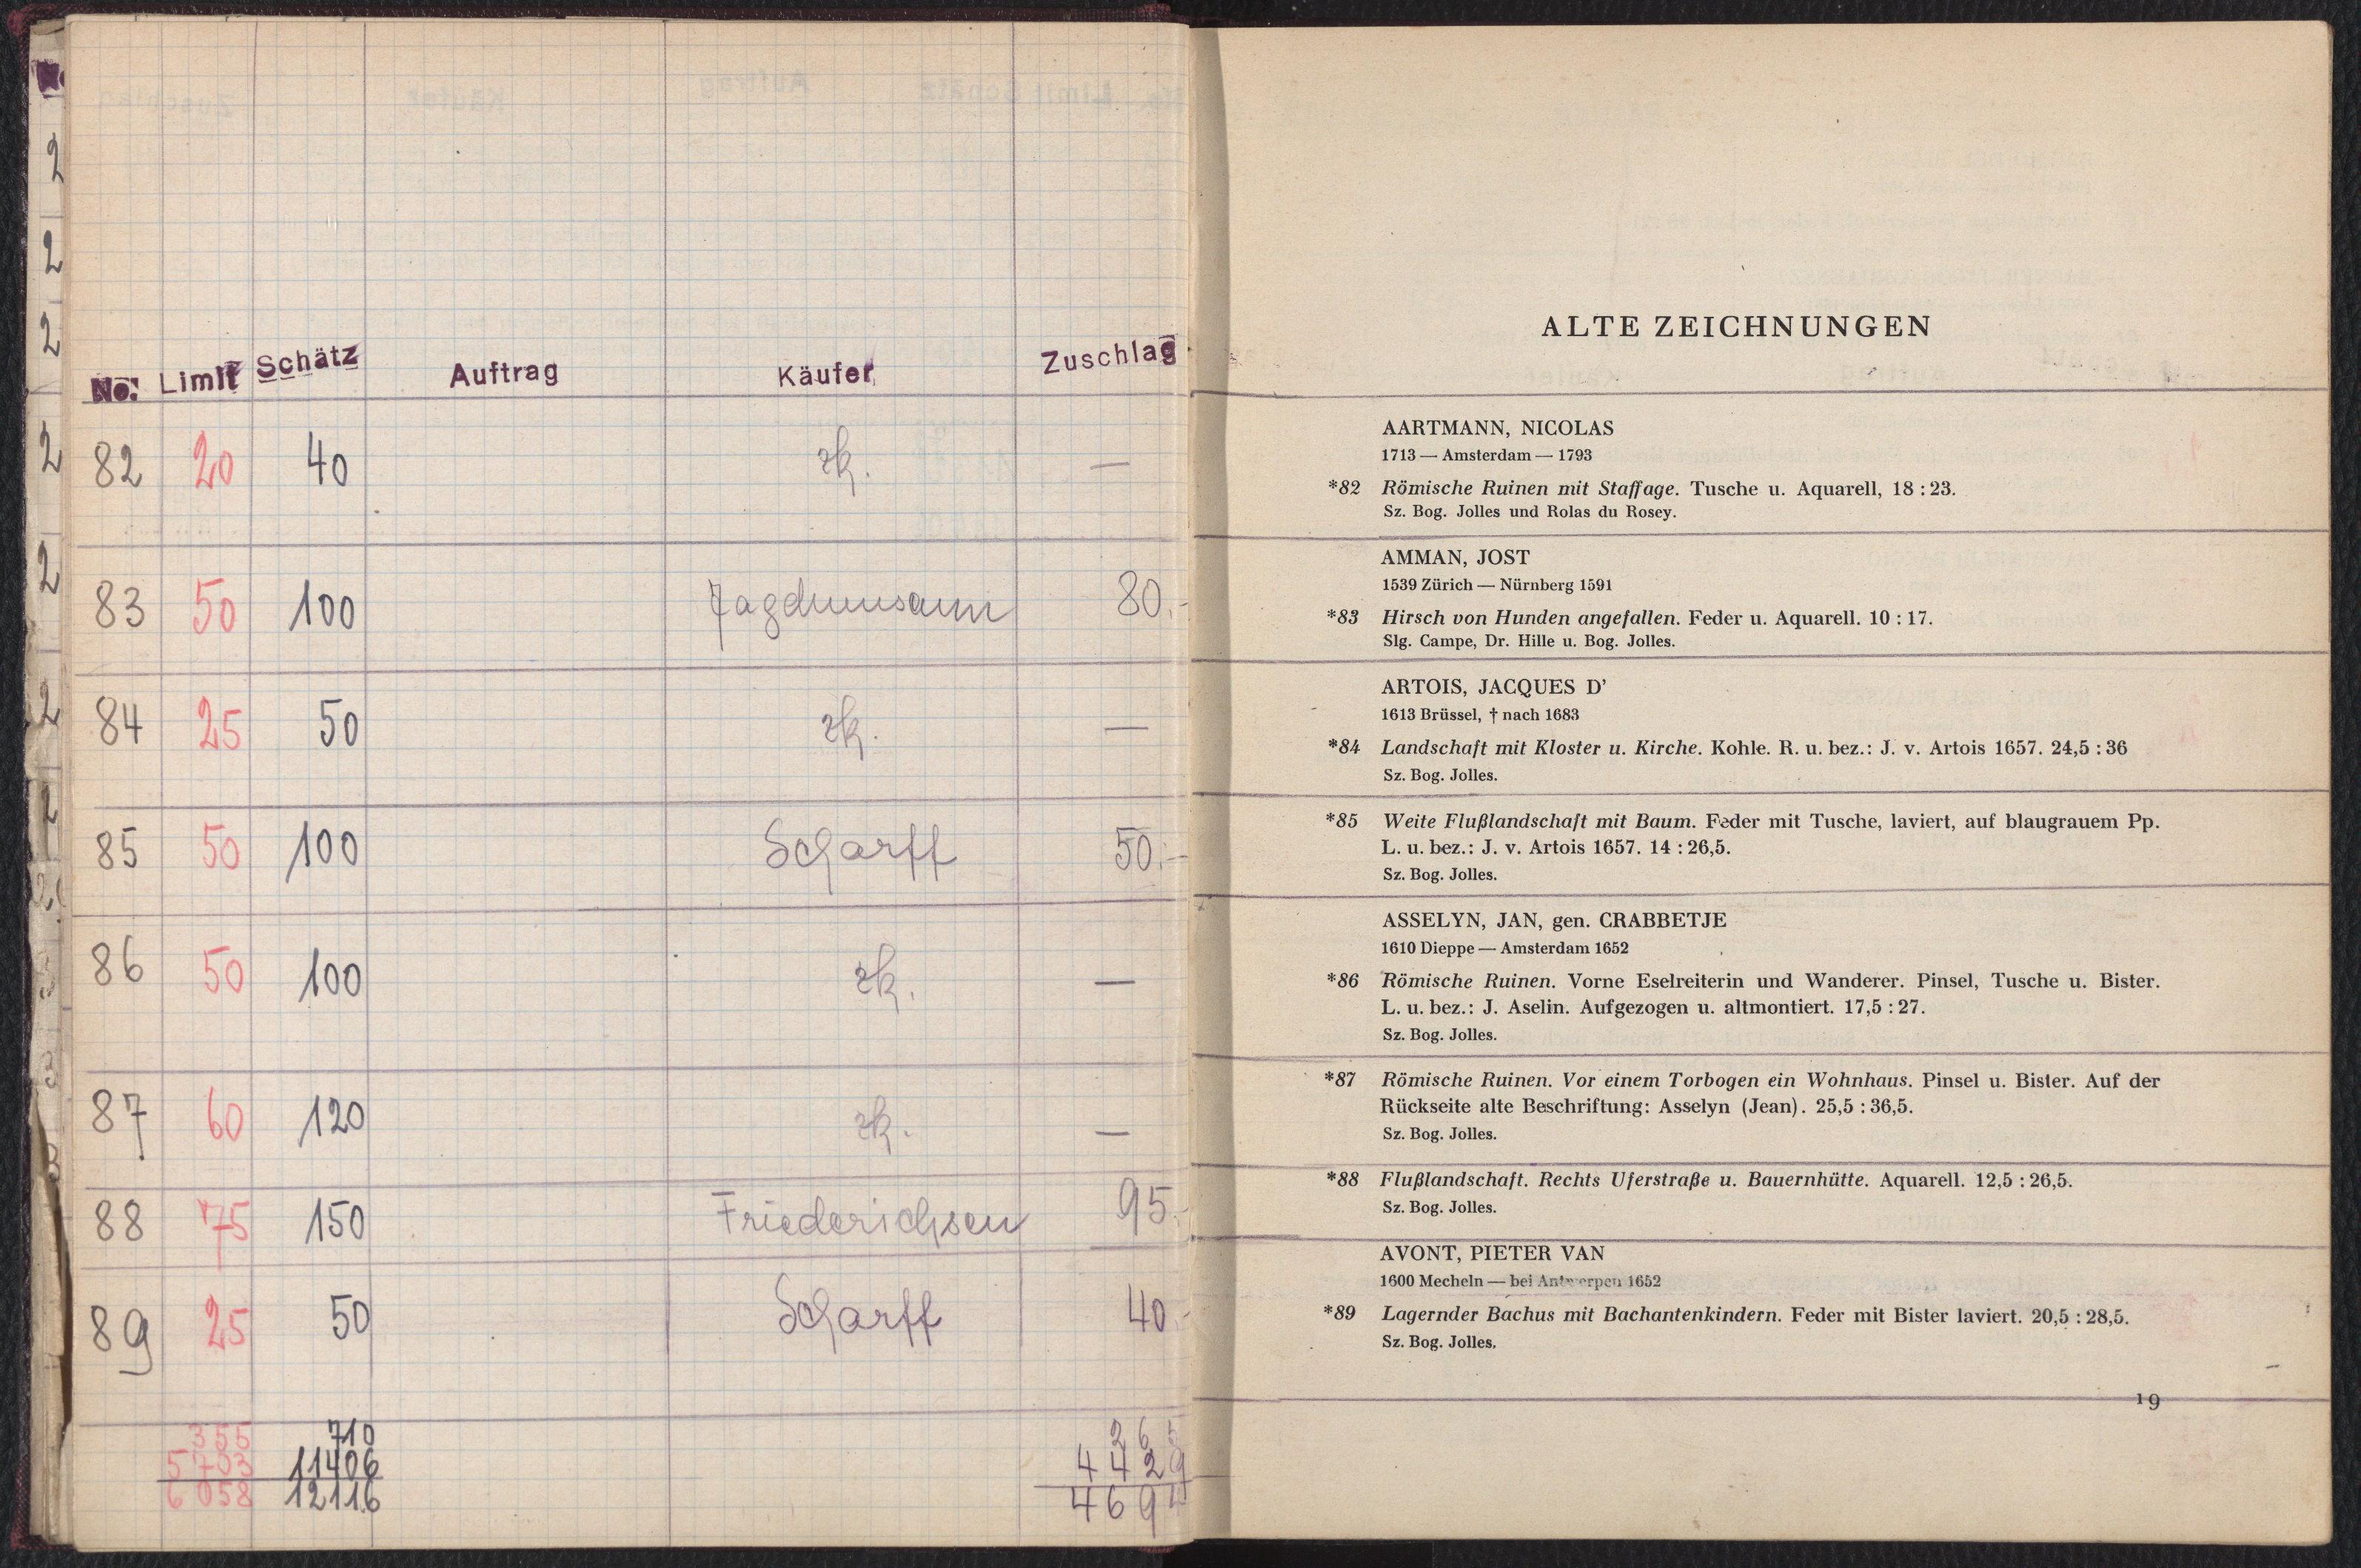 No. Limit Schätz Auftrag Käufer Zuschlag
82 20 40 zk. —
83 50 100 80.-
84 25 50 zk. —
85 50 100 Scharff 50.-
86 50 100 zk. —
87 60 120 zk. —
88 75 150 Friederichsen 95.-
89 25 50 Scharff 40.-
355 710 265
5703 11406 4429
6058 12116 4694
ALTE ZEICHNUNGEN
AARTMANN, NICOLAS
1713 — Amsterdam — 1793
*82 Römische Ruinen mit Staffage. Tusche u. Aquarell, 18 : 23.
Sz. Bog. Jolles und Rolas du Rosey.
AMMAN, JOST
1539 Zürich — Nürnberg 1591
*83 Hirsch von Hunden angefallen. Feder u. Aquarell. 10 : 17.
Slg. Campe, Dr. Hille u. Bog. Jolles.
ARTOIS, JACQUES D'
1613 Brüssel, † nach 1683
*84 Landschaft mit Kloster u. Kirche. Kohle. R. u. bez.: J. v. Artois 1657. 24,5 : 36
Sz. Bog. Jolles.
*85 Weite Flußlandschaft mit Baum. Feder mit Tusche, laviert, auf blaugrauem Pp.
L. u. bez.: J. v. Artois 1657. 14 : 26,5.
Sz. Bog. Jolles.
ASSELYN, JAN, gen. CRABBETJE
1610 Dieppe — Amsterdam 1652
*86 Römische Ruinen. Vorne Eselreiterin und Wanderer. Pinsel, Tusche u. Bister.
L. u. bez.: J. Aselin. Aufgezogen u. altmontiert. 17,5 : 27.
Sz. Bog. Jolles.
*87 Römische Ruinen. Vor einem Torbogen ein Wohnhaus. Pinsel u. Bister. Auf der
Rückseite alte Beschriftung: Asselyn (Jean). 25,5 : 36,5.
Sz. Bog. Jolles.
*88 Flußlandschaft. Rechts Uferstraße u. Bauernhütte. Aquarell. 12,5 : 26,5.
Sz. Bog. Jolles.
AVONT, PIETER VAN
1600 Mecheln — bei Antwerpen 1652
*89 Lagernder Bachus mit Bachantenkindern. Feder mit Bister laviert. 20,5 : 28,5.
Sz. Bog. Jolles.
19